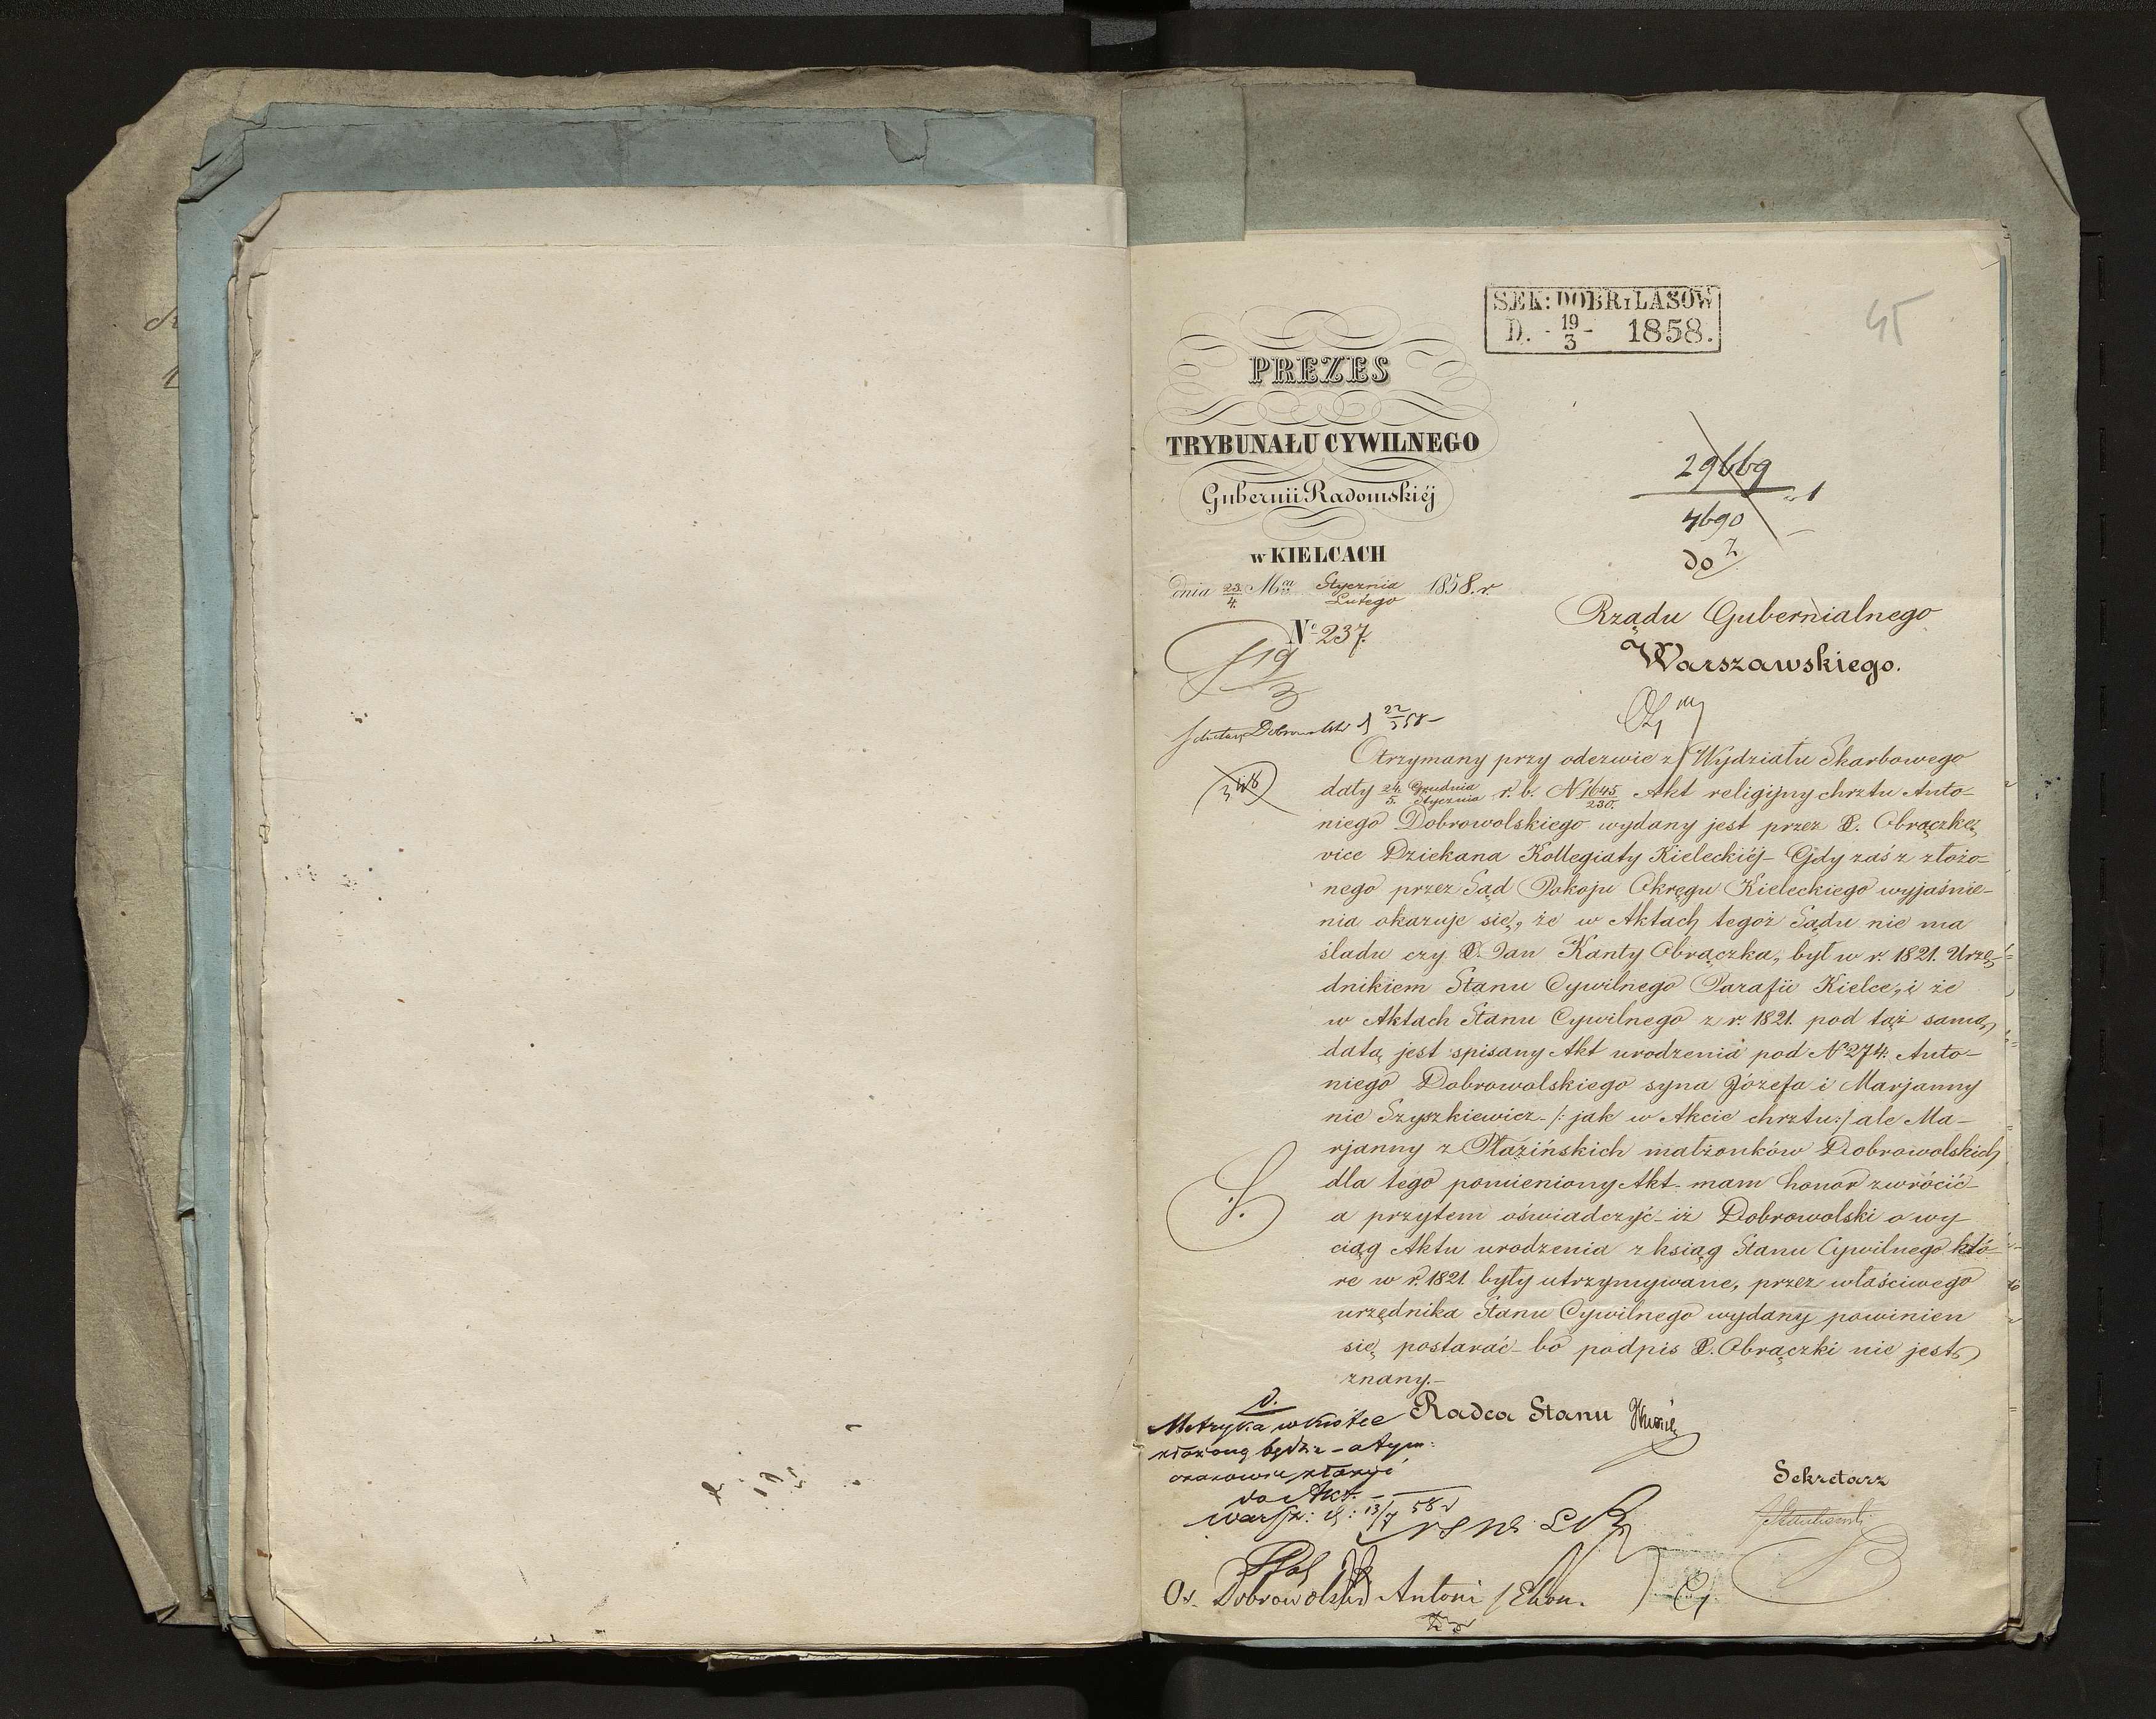 SEK: DOBR i LASÓW
D. - 19/3 - 1858.
45
PREZES
TRYBUNAŁU CYWILNEGO
Gubernii Radomskiéj
w KIELCACH
dnia 23/4 Mca Stycznia/Lutego 1858. r.
No 237.
19/3
29669
4690
do
Rządu Gubernialnego
Warszawskiego.
Dobrowolski 22/3 58
348
Otrzymany przy odezwie z Wydziału Skarbowego
daty 24/5 Grudnia/Stycznia r. b. N 1645/230. Akt religijny chrztu Anto-
niego Dobrowolskiego wydany jest przez X. Obrączkę
vice Dziekana Kollegiaty Kieleckiéj - Gdy zaś z złożo-
nego przez Sąd Pokoju Okręgu Kieleckiego wyjaśnie-
nia okazuje się, że w Aktach tegoż Sądu nie ma
śladu czy X. Jan Kanty Obrączka, był w r. 1821. Urzę-
dnikiem Stanu Cywilnego Parafii Kielce, i że
w Aktach Stanu Cywilnego z r. 1821. pod tąż samą
datą jest spisany Akt urodzenia pod N 274. Anto-
niego Dobrowolskiego syna Józefa i Marjanny
nie Szyszkiewicz - /: jak w Akcie chrztu :/ ale Ma-
rjanny z Płazińskich małżonków Dobrowolskich
dla tego pomieniony Akt - mam honor zwrócić -
a przytem oświadczyć - iż Dobrowolski o wy-
ciąg Aktu urodzenia z ksiąg Stanu Cywilnego któ-
re w r. 1821. były utrzymywane, przez właściwego
urzędnika Stanu Cywilnego wydany powinien
się postarać - bo podpis X. Obrączki nie jest
znany. -
Radca Stanu
Metryka wkrótce
złożoną będzie - a tym:
czasowie złożyć
do Akt. -
Warsz: d: 13/7 58 r
Sekretarz
Os. Dobrowolski Antoni